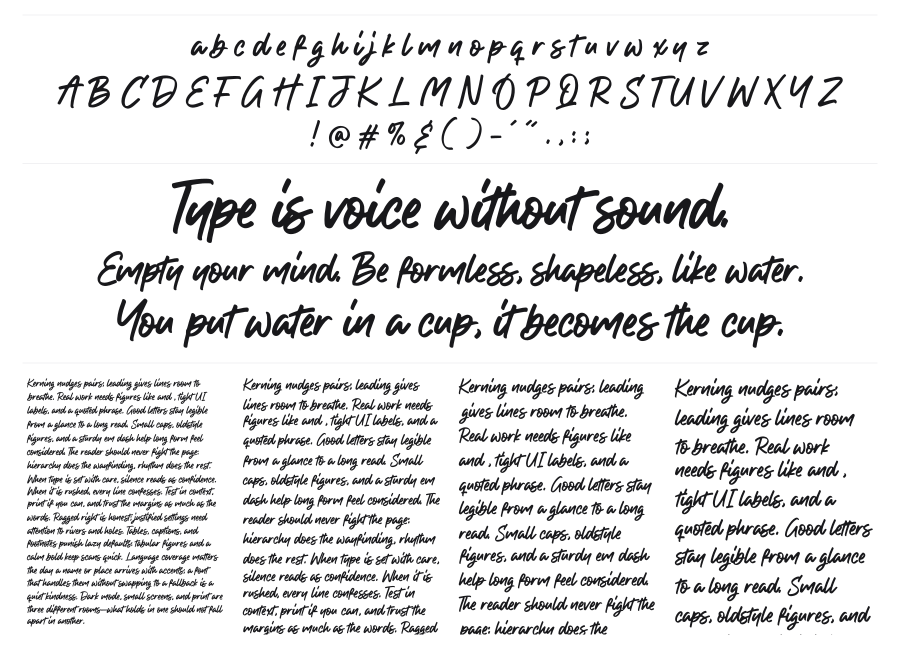 a b c d e f g h i j k l m n o p q r s t u v w x y z
A B C D E F G H I J K L M N O P Q R S T U V W X Y Z
! @ # % & ( ) - ´ ˝ . , : ;
Type is voice without sound.
Empty your mind. Be formless, shapeless, like water.
You put water in a cup, it becomes the cup.
Kerning nudges pairs; leading gives lines room to
breathe. Real work needs figures like and , tight UI
labels, and a quoted phrase. Good letters stay legible
from a glance to a long read. Small caps, oldstyle
figures, and a sturdy em dash help long form feel
considered. The reader should never fight the page:
hierarchy does the wayfinding, rhythm does the rest.
When type is set with care, silence reads as confidence.
When it is rushed, every line confesses. Test in context,
print if you can, and trust the margins as much as the
words. Ragged right is honest; justified settings need
attention to rivers and holes. Tables, captions, and
footnotes punish lazy defaults: tabular figures and a
calm bold keep scans quick. Language coverage matters
the day a name or place arrives with accents; a font
that handles them without swapping to a fallback is a
quiet kindness. Dark mode, small screens, and print are
three different rooms—what holds in one should not fall
apart in another.
Kerning nudges pairs; leading gives
lines room to breathe. Real work needs
figures like and , tight UI labels, and a
quoted phrase. Good letters stay legible
from a glance to a long read. Small
caps, oldstyle figures, and a sturdy em
dash help long form feel considered. The
reader should never fight the page:
hierarchy does the wayfinding, rhythm
does the rest. When type is set with care,
silence reads as confidence. When it is
rushed, every line confesses. Test in
context, print if you can, and trust the
margins as much as the words. Ragged
Kerning nudges pairs; leading
gives lines room to breathe.
Real work needs figures like
and , tight UI labels, and a
quoted phrase. Good letters stay
legible from a glance to a long
read. Small caps, oldstyle
figures, and a sturdy em dash
help long form feel considered.
The reader should never fight the
page: hierarchy does the
Kerning nudges pairs;
leading gives lines room
to breathe. Real work
needs figures like and ,
tight UI labels, and a
quoted phrase. Good letters
stay legible from a glance
to a long read. Small
caps, oldstyle figures, and